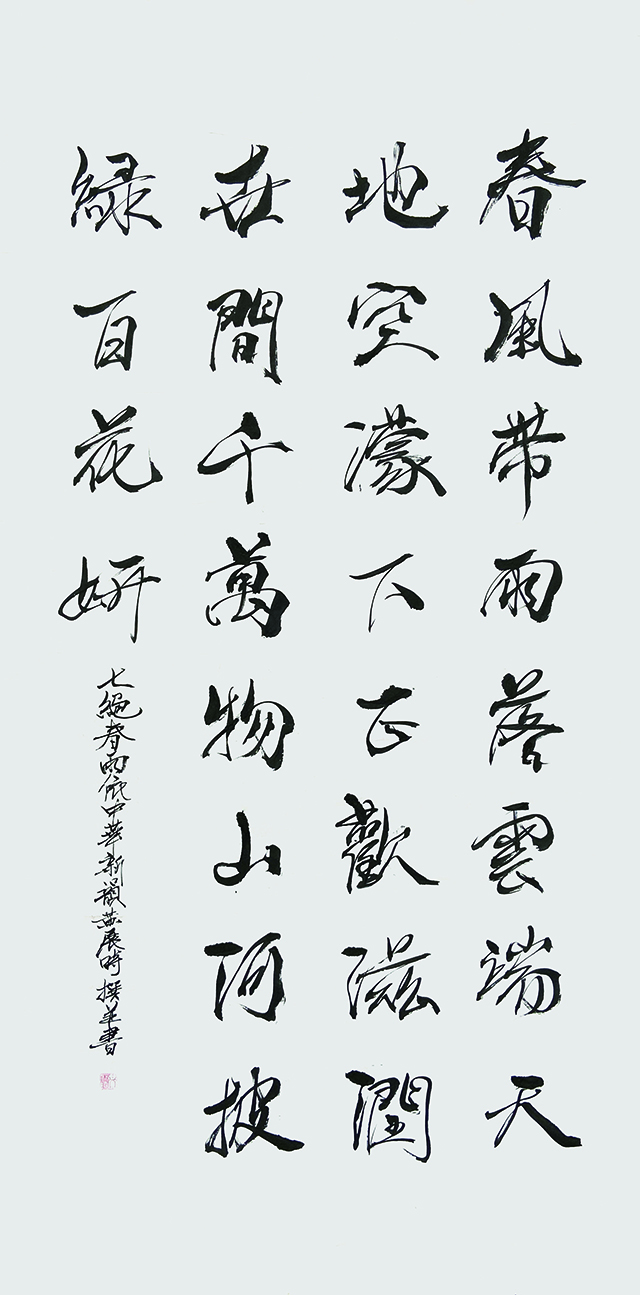 春風帶雨落雲端天
地空濛下正歡滋潤
世間千萬物山河披
綠百花妍
七絕春雨依中華新韻黃展時撰並書